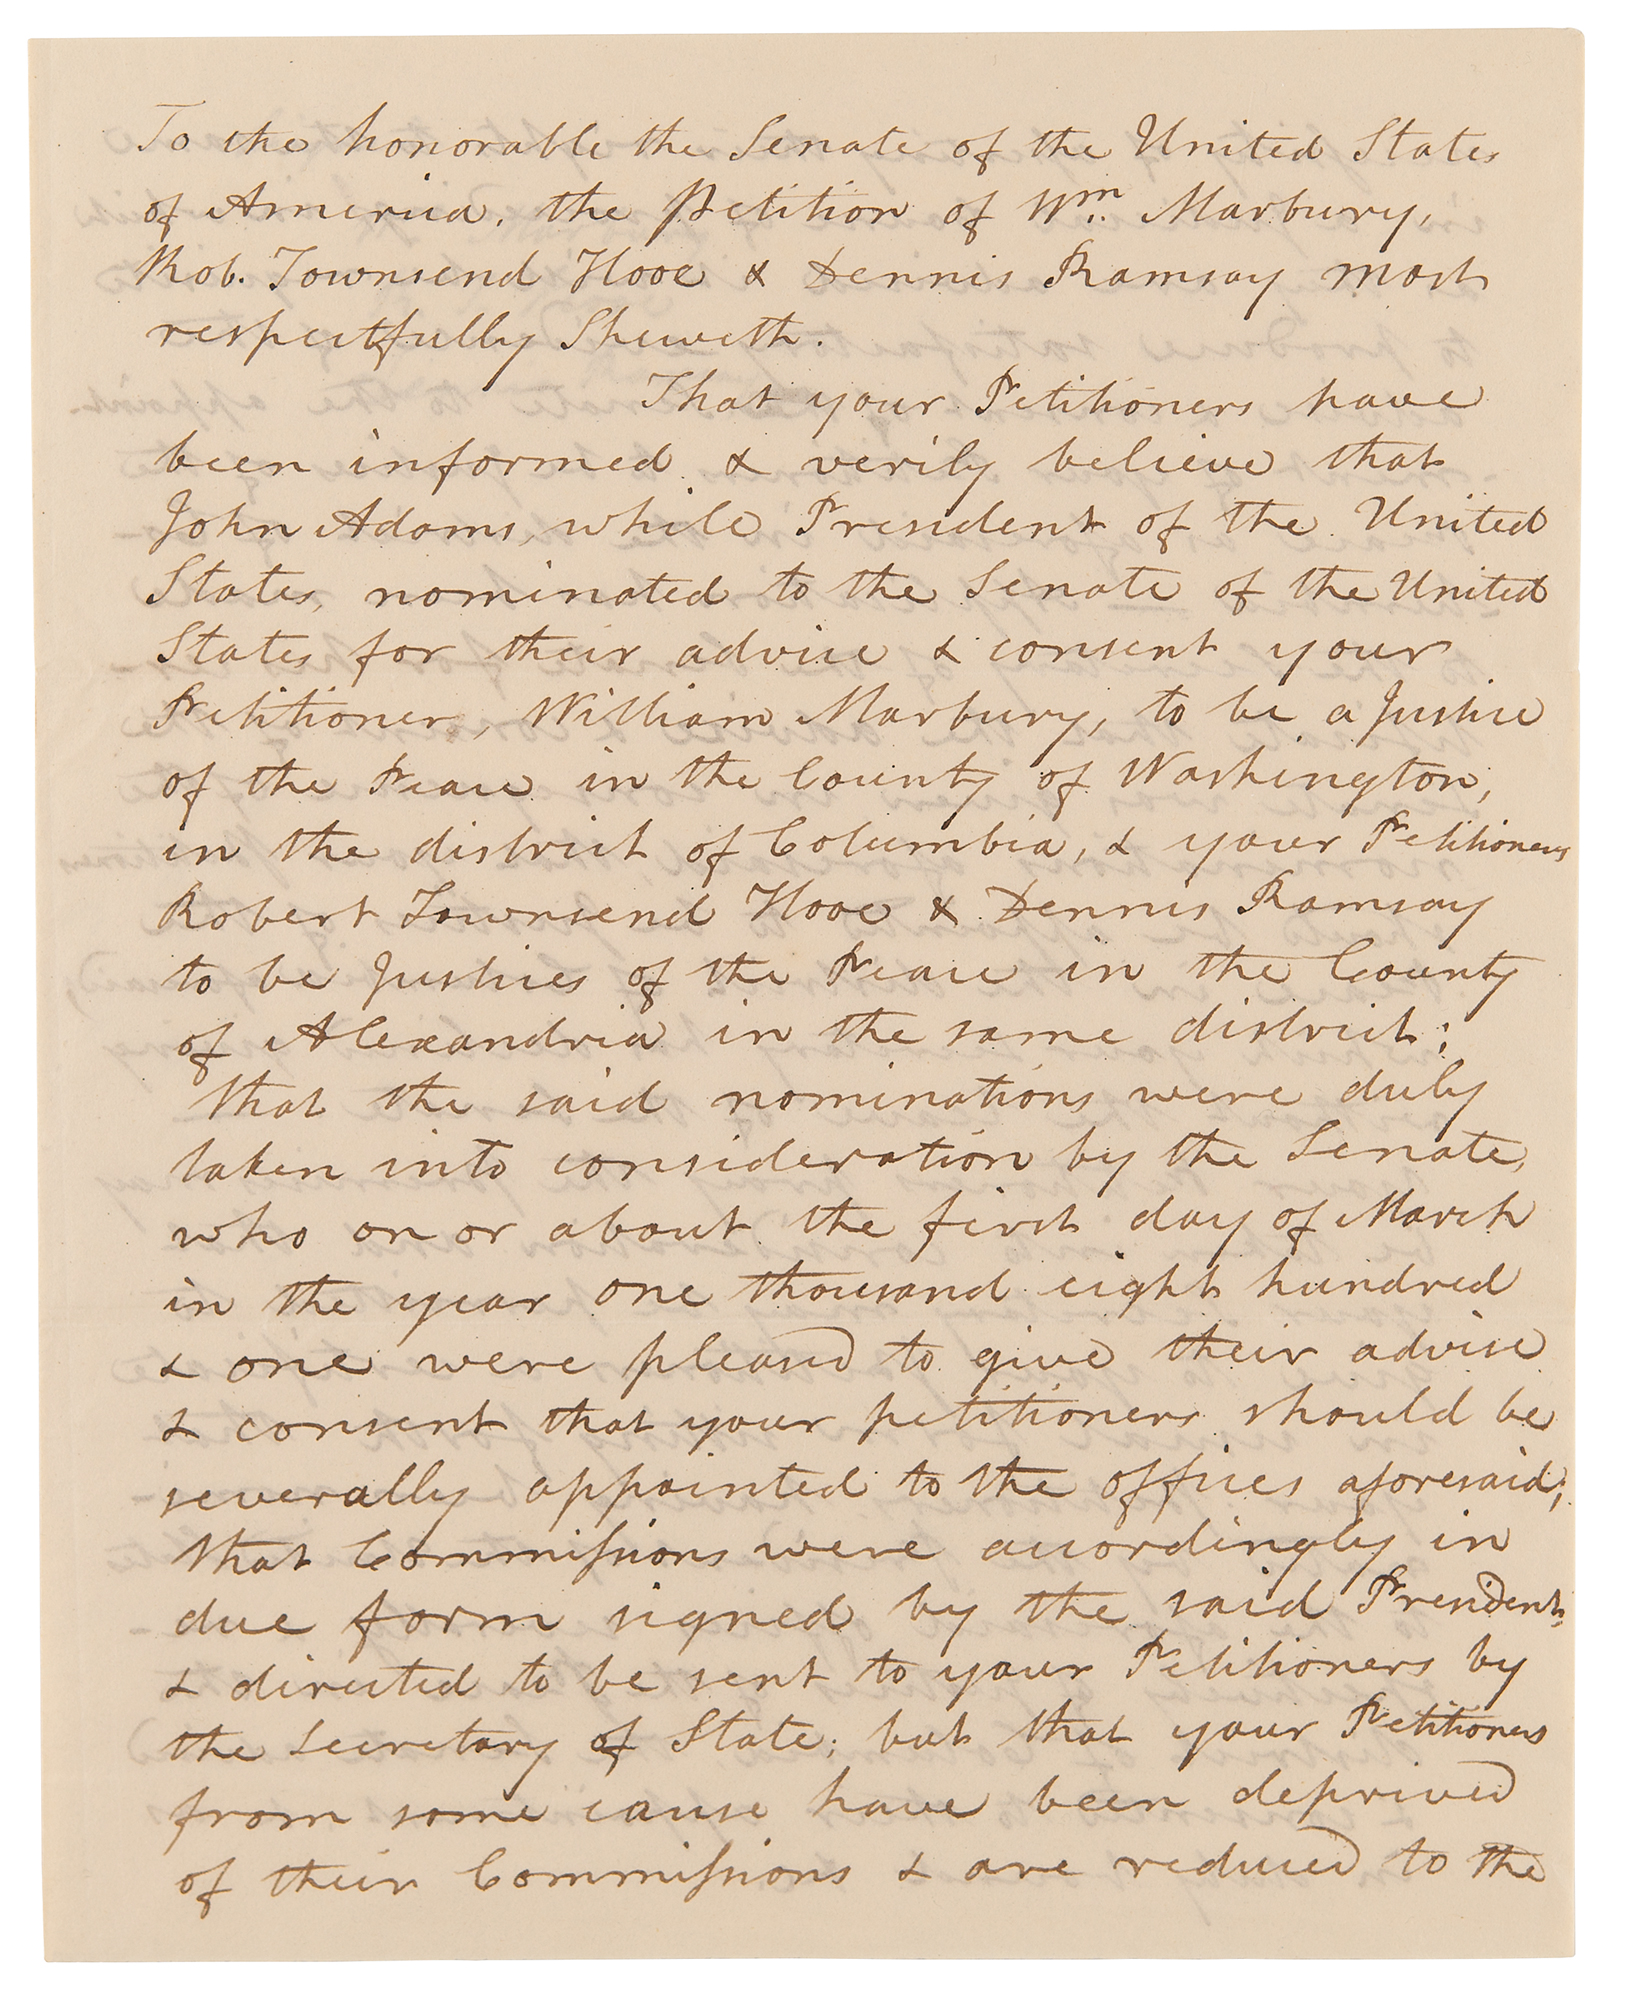 To the honorable the Senate of the United States
of America, the Petition of Wm. Marbury,
Rob. Townsend Hooe & Dennis Ramsay most
respectfully Sheweth.
That your Petitioners have
been informed & verily believe that
John Adams, while President of the United
States, nominated to the Senate of the United
States for their advice & consent your
Petitioner, William Marbury, to be a Justice
of the Peace in the County of Washington,
in the district of Columbia, & your Petitioners
Robert Townsend Hooe & Dennis Ramsay
to be Justices of the Peace in the County
of Alexandria in the same district;
that the said nominations were duly
taken into consideration by the Senate,
who on or about the first day of March
in the year one thousand eight hundred
& one were pleased to give their advice
& consent that your petitioners should be
severally appointed to the offices aforesaid;
that Commiſsions were accordingly in
due form signed by the said President,
& directed to be sent to your Petitioners by
the Secretary of State; but that your Petitioners
from some cause have been deprived
of their Commiſsions & are reduced to the